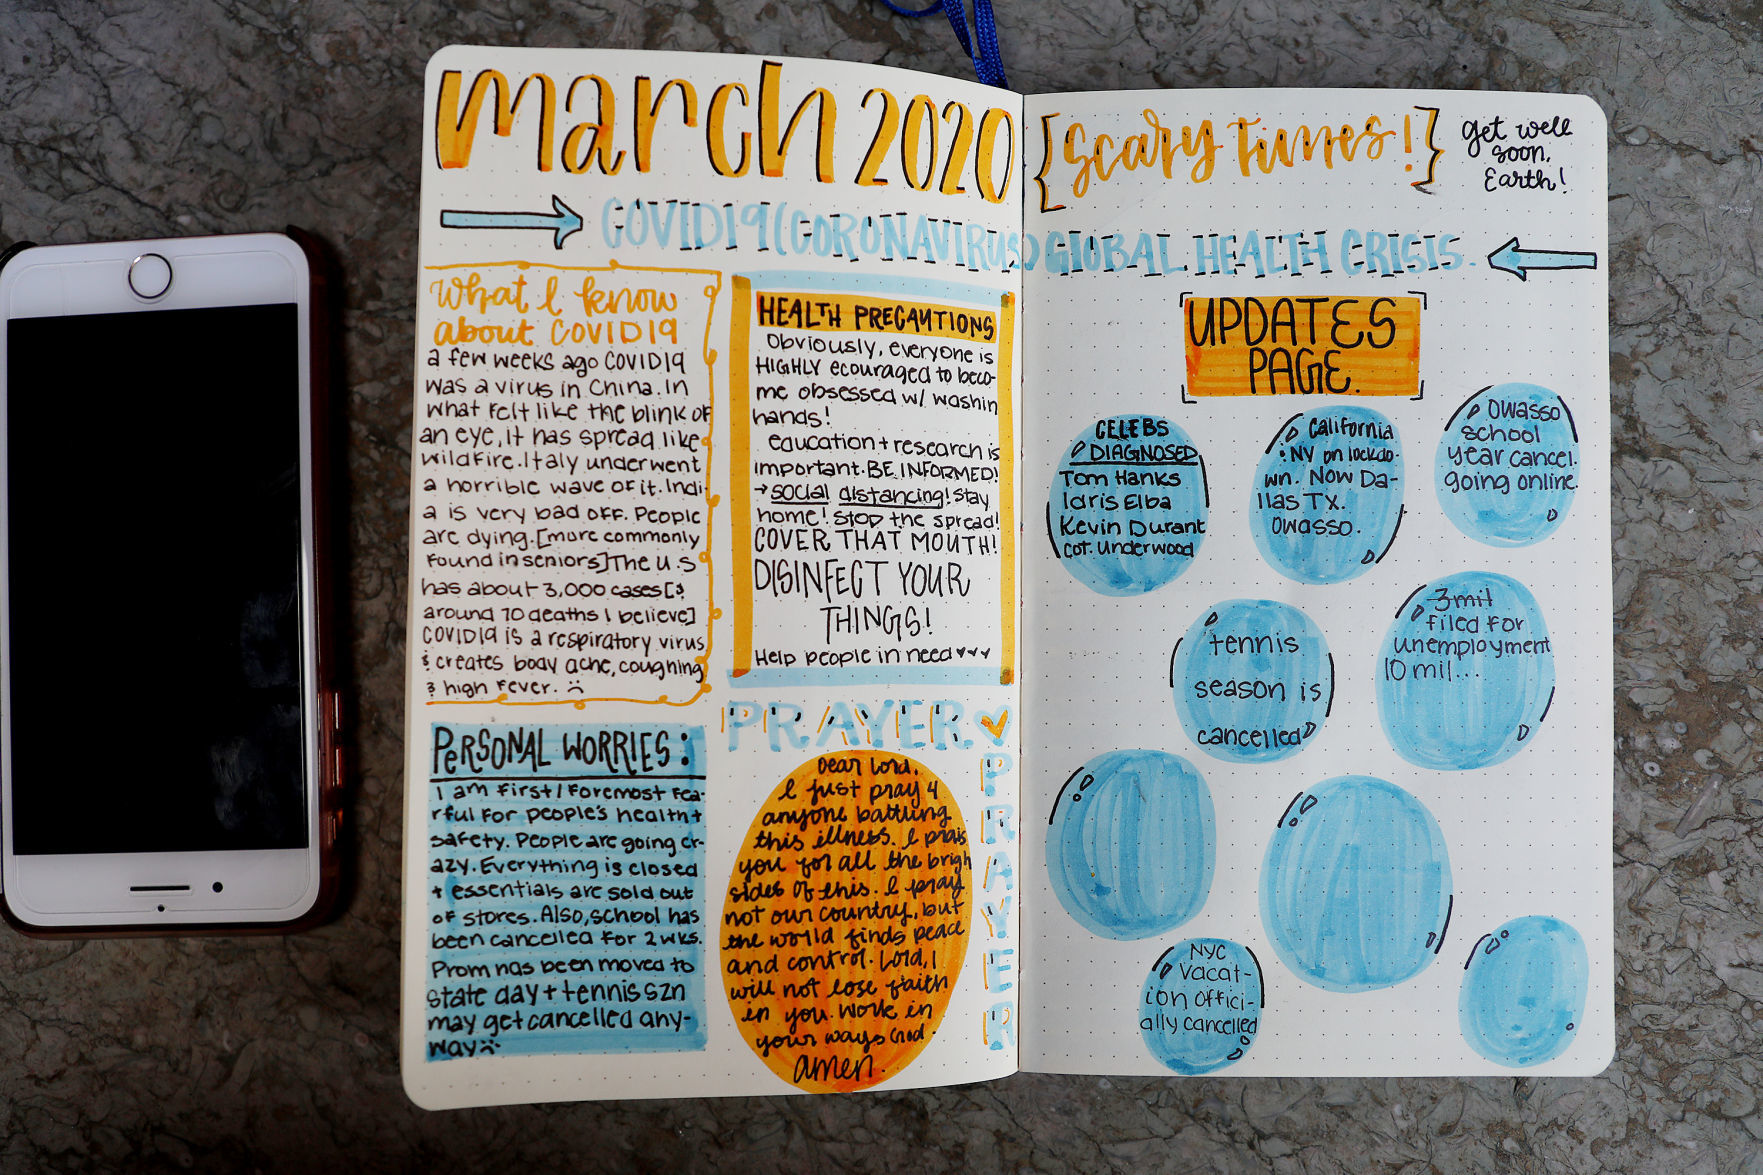 march 2020
COVID19 (CORONAVIRUS)
What I know
about COVID19
a few weeks ago COVID19
was a virus in China. In
what felt like the blink of
an eye, it has spread like
wildfire. Italy underwent
a horrible wave of it. Indi-
a is very bad off. People
are dying. [more commonly
found in seniors] The U.S
has about 3,000 cases [&
around 70 deaths I believe]
COVID19 is a respiratory virus
& creates body ache, coughing
& high fever. :(
HEALTH PRECAUTIONS
Obviously, everyone is
HIGHLY ecouraged to beco-
me obsessed w/ washin
hands!
education + research is
important. BE INFORMED!
→ social distancing! stay
home! Stop the spread!
COVER THAT MOUTH!
DISINFECT YOUR
THINGS!
Help people in need ♥♥♥
PERSONAL WORRIES:
I am first/foremost fea-
rful for people's health +
safety. People are going cr-
azy. Everything is closed
+ essentials are sold out
of stores. Also, school has
been cancelled for 2 wks.
Prom has been moved to
state day + tennis szn
may get cancelled any-
way :(
PRAYER ♥
Dear Lord,
I just pray 4
anyone battling
this illness. I prais
you for all the brigh
sides of this. I pray
not our country, but
the world finds peace
and control. Lord, I
will not lose faith
in you. Work in
your ways God.
amen.
PRAYER
{Scary times!}
get well
soon,
Earth!
GLOBAL HEALTH CRISIS.
UPDATES
PAGE.
CELEBS
DIAGNOSED
Tom Hanks
Idris Elba
Kevin Durant
Underwood
California
: NY on lockdo-
wn. Now Da-
llas TX.
Owasso.
Owasso
school
year cancel.
going online.
tennis
season is
cancelled
3 mil
filed for
unemployment
10 mil...
NYC
vacat-
ion offici-
ally cancelled